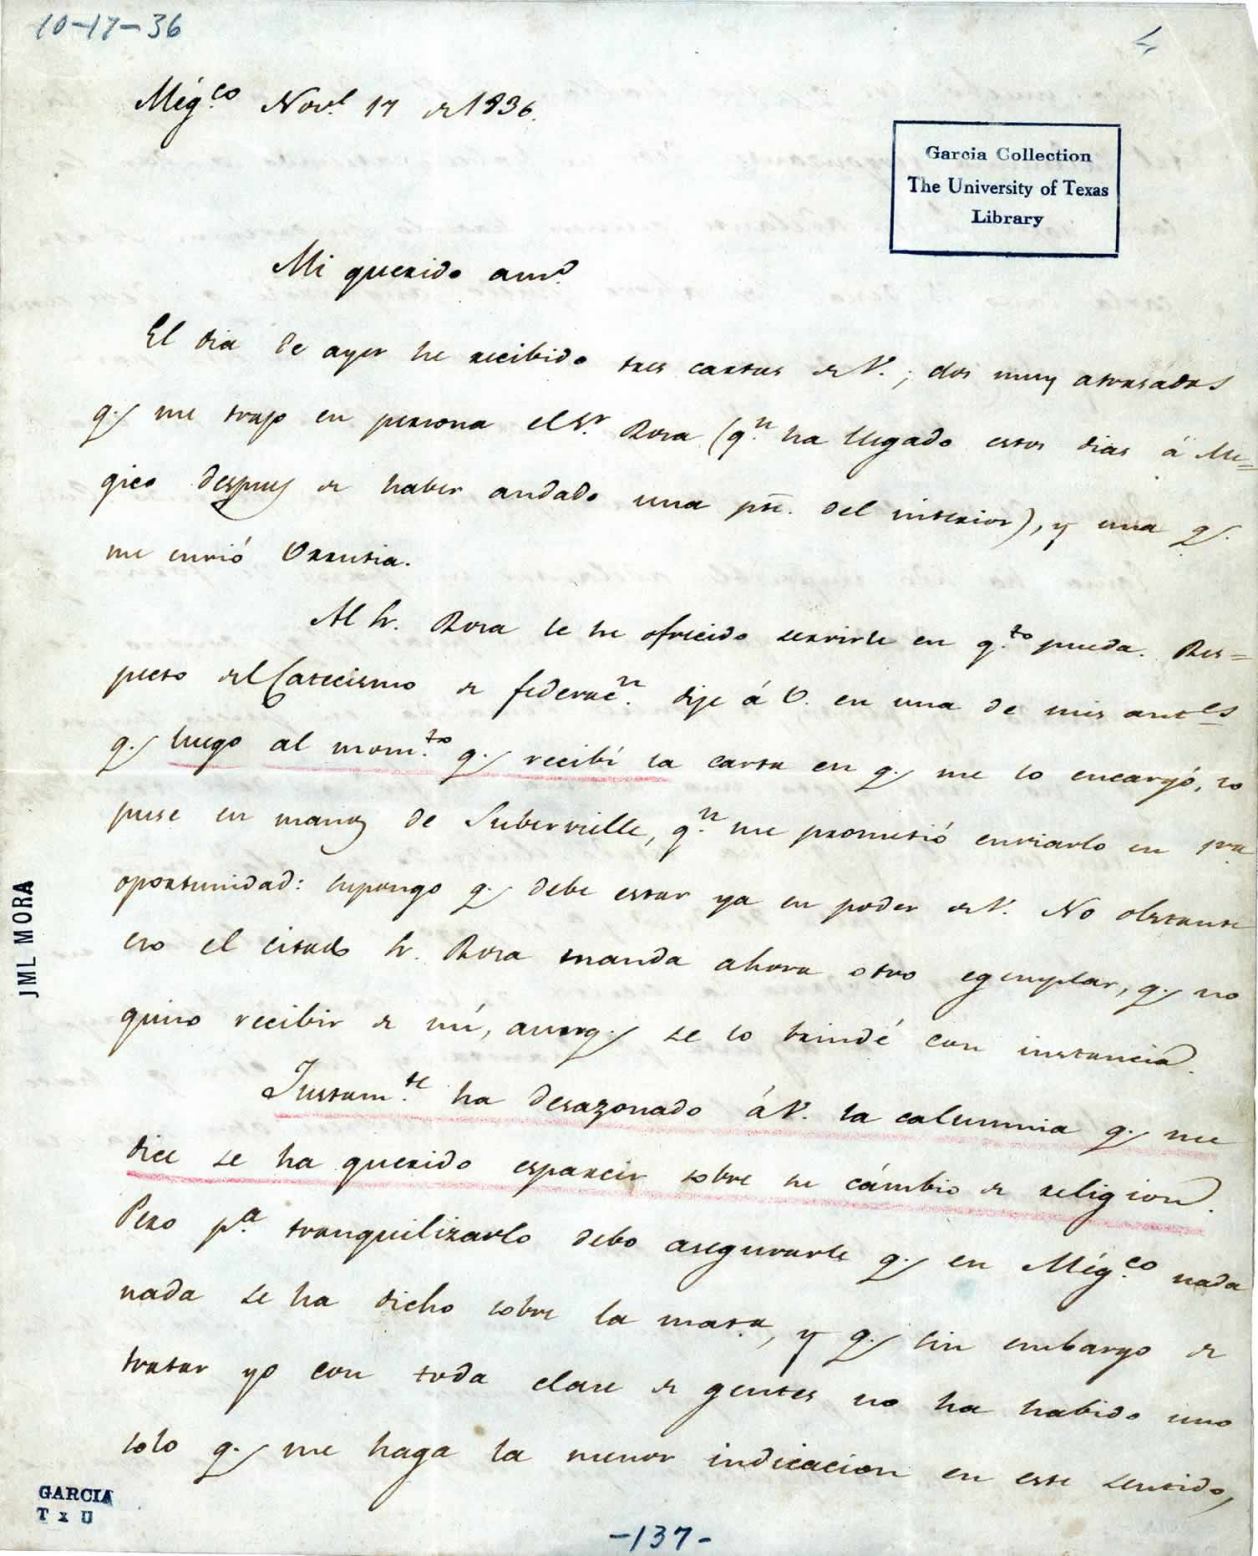 10-17-36
4
Mégco Nove 17 de 1836.
Garcia Collection
The University of Texas
Library
Mi querido amo
El dia de ayer he recibido tres cartas de V.; dos muy atrasadas
q. me trajo en persona el Sr Rosa (qn ha llegado estos dias á Me=
gico despues de haber andado una pte. del interior), y una q.
me envió Urrutia.
Al Sr. Rosa le he ofrecido servirle en qto pueda. Res=
pecto del Catecismo de federacn. dije á V. en una de mis antes
q. luego al momto q. recibí la carta en q. me lo encargó, lo
puse en manos de Subervielle, qn me prometió enviarlo en pra
oportunidad: supongo q. debe estar ya en poder de V. No obstante
eso el citado Sr. Rosa manda ahora otro egemplar, q. no
quiso recibir de mí, aunq. se lo brindé con instancia.
Justamte ha desazonado á V. la calumnia q. me
dice se ha querido esparcir sobre su cámbio de religion.
Pero pa tranquilizarlo debo asegurarle q. en Mégco nada
nada se ha dicho sobre la mata, y q. sin embargo de
tratar yo con toda clase de gentes no ha habido uno
solo q. me haga la menor indicacion en este sentido,
JML MORA
GARCIA
T x U
-137-